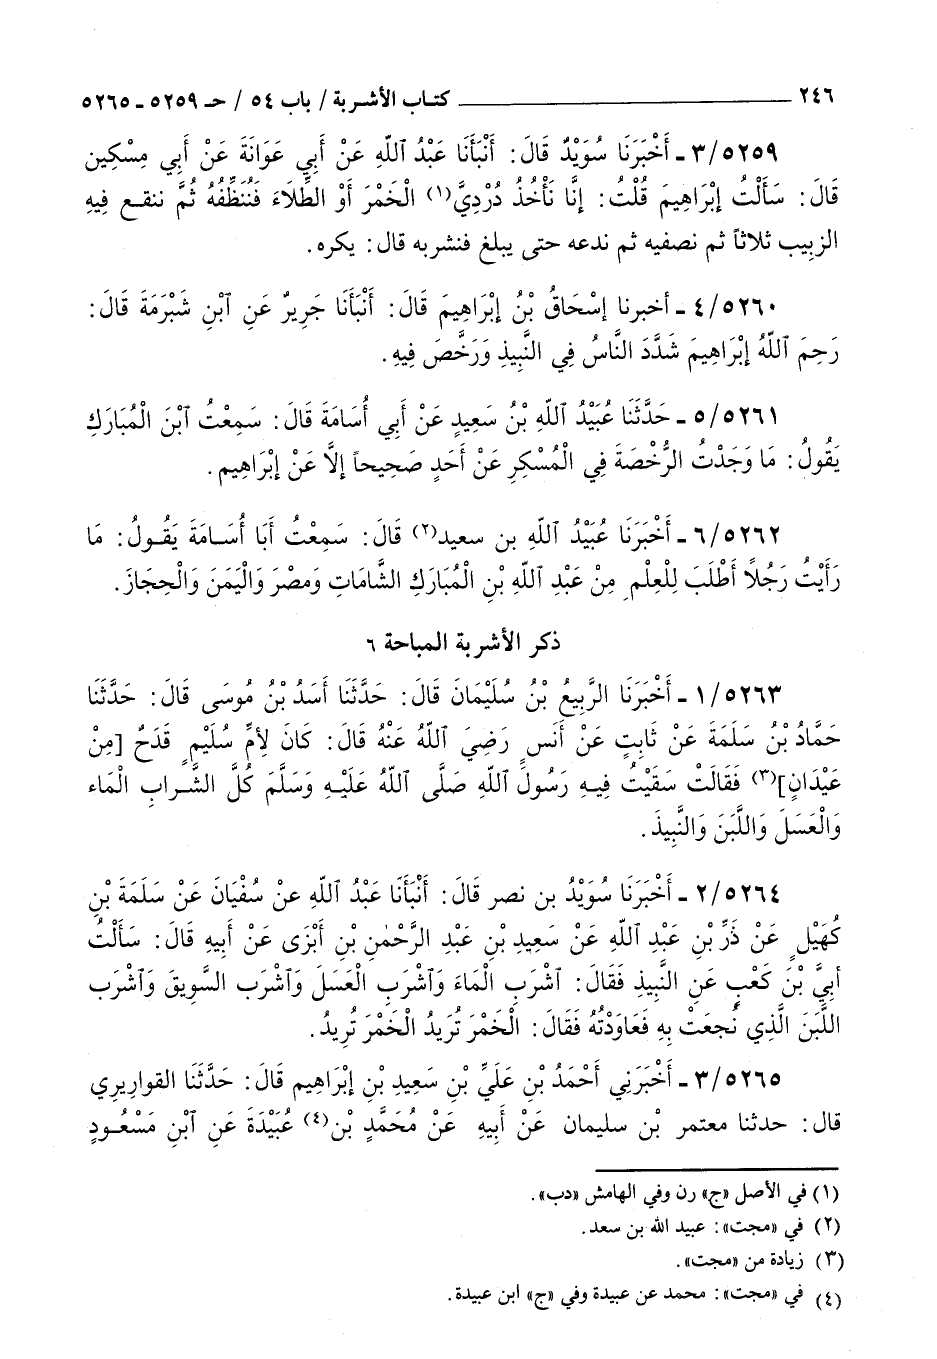 ٢٤٦ ــــــــــ كتـاب الأشـربة / باب ٥٤ / حـ ٥٢٥٩ ـ ٥٢٦٥
٣/٥٢٥٩ ـ أَخْبَرَنَا سُوَيْدٌ قَالَ: أَنْبَأَنَا عَبْدُ ٱللّهِ عَنْ أَبِي عَوَانَةَ عَنْ أَبِي مِسْكِين
قَالَ: سَأَلْتُ إِبْرَاهِيمَ قُلْتُ: إِنَّا نَأْخُذُ دُرْدِيَّ(١) الْخَمْرَ أَوْ الطِّلَاءَ فَنُنَظِّفُهُ ثُمَّ ننقـع فِيهِ
الزبيب ثلاثاً ثم نصفيه ثم ندعه حتى يبلغ فنشربه قال: يكره.
٤/٥٢٦٠ ـ أخبرنا إِسْحَاقُ بْنُ إِبْرَاهِيمَ قَالَ: أَنْبَأَنَا جَرِيرٌ عَنِ ٱبْنِ شَبْرَمَةَ قَالَ:
رَحِمَ ٱللّهُ إِبْرَاهِيمَ شَدَّدَ النَّاسُ فِي النَّبِيذِ وَرَخَّصَ فِيهِ.
٥/٥٢٦١ ـ حَدَّثَنَا عُبَيْدُ ٱللّهِ بْنُ سَعِيدٍ عَنْ أَبِي أُسَامَةَ قَالَ: سَمِعْتُ ٱبْنَ الْمُبَارَكِ
يَقُولُ: مَا وَجَدْتُ الرُّخْصَةَ فِي الْمُسْكِرِ عَنْ أَحَدٍ صَحِيحاً إِلَّا عَنْ إِبْرَاهِيم.
٦/٥٢٦٢ ـ أَخْبَرَنَا عُبَيْدُ ٱللّهِ بن سعيد(٢) قَالَ: سَمِعْتُ أَبَا أُسَامَةَ يَقُولُ: مَا
رَأَيْتُ رَجُلاً أَطْلَبَ لِلْعِلْمِ مِنْ عَبْدِ ٱللّهِ بْنِ الْمُبَارَكِ الشَّامَاتِ وَمصْرَ وَالْيَمَنَ وَالْحِجَازَ.
ذكر الأشربة المباحة ٦
١/٥٢٦٣ ـ أَخْبَرَنَا الرَّبِيعُ بْنُ سُلَيْمَانَ قَالَ: حَدَّثَنَا أَسَدُ بْنُ مُوسَى قَالَ: حَدَّثَنَا
حَمَّادُ بْنُ سَلَمَةَ عَنْ ثَابِتٍ عَنْ أَنَسٍ رَضِيَ ٱللّهُ عَنْهُ قَالَ: كَانَ لِأُمِّ سُلَيْمٍ قَدَحٌ [مِنْ
عَيْدَانٍ](٣) فَقَالَتْ سَقَيْتُ فِيهِ رَسُولَ ٱللّهِ صَلَّى ٱللّهُ عَلَيْهِ وَسَلَّمَ كُلَّ الشَّرابِ الْمَاء
وَالْعَسَلَ وَاللَّبَنَ وَالنَّبِيذَ.
٢/٥٢٦٤ ـ أَخْبَرَنَا سُوَيْدُ بن نصر قَالَ: أَنْبَأَنَا عَبْدُ ٱللّهِ عنْ سُفْيَانَ عَنْ سَلَمَةَ بْنِ
كُهَيْلٍ عَنْ ذَرِّ بْنِ عَبْدِ ٱللّهِ عَنْ سَعِيدِ بْنِ عَبْدِ الرَّحْمٰنِ بْنِ أَبْزَى عَنْ أَبِيهِ قَالَ: سَأَلْتُ
أُبَيَّ بْنَ كَعْبٍ عَنِ النَّبِيذِ فَقَالَ: ٱشْرَبِ الْمَاءَ وَٱشْرَبِ الْعَسَلَ وَٱشْرَبِ السَّوِيقَ وَٱشْرَبِ
اللَّبَنَ الَّذِي نُجِعْتَ بِهِ فَعَاوَدْتُهُ فَقَالَ: الْخَمْرَ تُرِيدُ الْخَمْرَ تُرِيدُ.
٣/٥٢٦٥ ـ أَخْبَرَنِي أَحْمَدُ بْنِ عَلَيِّ بْنِ سَعِيدِ بْنِ إِبْرَاهِيم قَالَ: حَدَّثَنَا القواريري
قال: حدثنا معتمر بْن سليمان عَنْ أَبيهِ عَنْ مُحَمَّدٍ بْنِ(٤) عُبَيْدَةَ عَنِ ٱبْنِ مَسْعُودٍ
(١) في الأصل «ج» رن وفي الهامش «دب».
(٢) في «مجت»: عبيد الله بن سعد.
(٣) زيادة من «مجت».
(٤) في «مجت»: محمد عن عبيدة وفي «ج» ابن عبيدة.